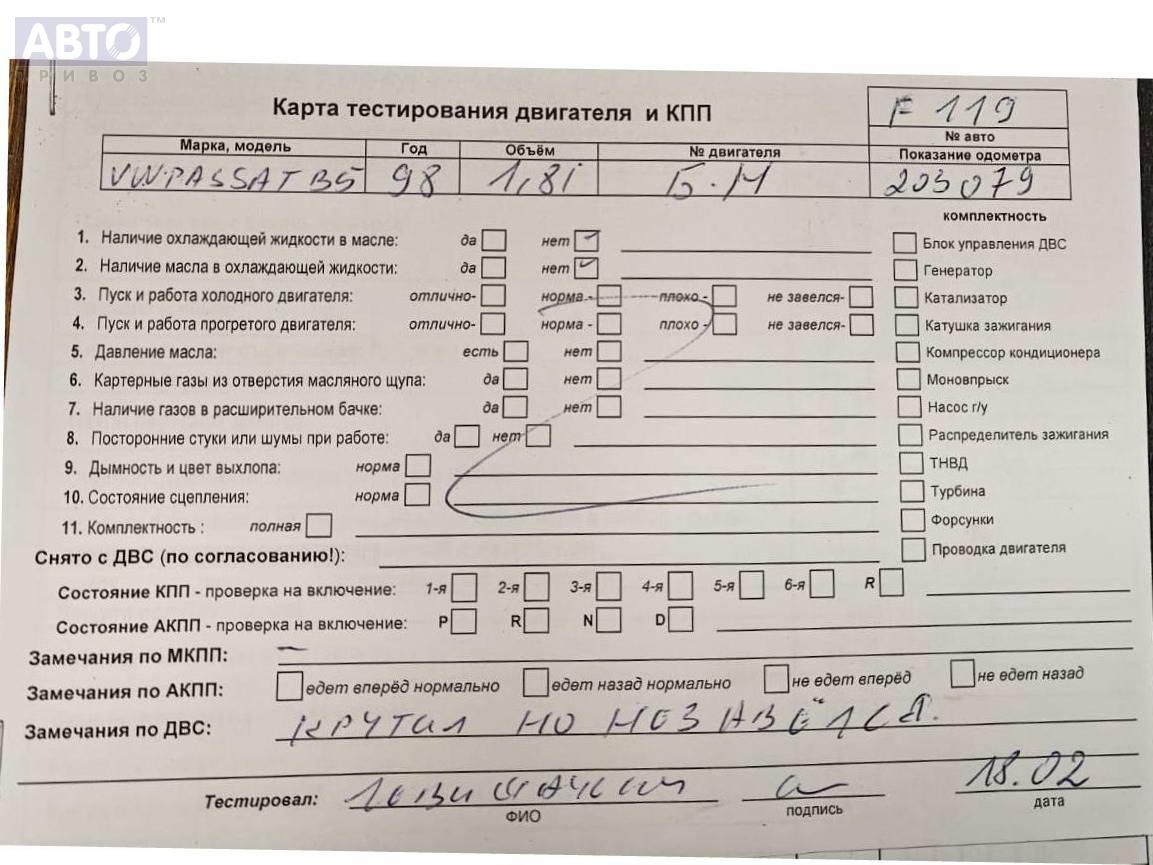 АВТО™
ПРИВОЗ
Карта тестирования двигателя и КПП
F 119
№ авто
Марка, модель Год Объём № двигателя Показание одометра
VW PASSAT B5 98 1,8i Б.Н 203079
комплектность
1. Наличие охлаждающей жидкости в масле: да нет Блок управления ДВС
2. Наличие масла в охлаждающей жидкости: да нет Генератор
3. Пуск и работа холодного двигателя: отлично- норма - плохо - не завелся- Катализатор
4. Пуск и работа прогретого двигателя: отлично- норма - плохо - не завелся- Катушка зажигания
5. Давление масла: есть нет Компрессор кондиционера
6. Картерные газы из отверстия масляного щупа: да нет Моновпрыск
7. Наличие газов в расширительном бачке: да нет Насос г/у
8. Посторонние стуки или шумы при работе: да нет Распределитель зажигания
9. Дымность и цвет выхлопа: норма ТНВД
10. Состояние сцепления: норма Турбина
11. Комплектность : полная Форсунки
Снято с ДВС (по согласованию!): Проводка двигателя
Состояние КПП - проверка на включение: 1-я 2-я 3-я 4-я 5-я 6-я R
Состояние АКПП - проверка на включение: P R N D
Замечания по МКПП: —
Замечания по АКПП: едет вперёд нормально едет назад нормально не едет вперёд не едет назад
Замечания по ДВС: КРУТИЛ НО НЕЗАВЁЛСЯ.
Тестировал: 18.02
ФИО подпись дата